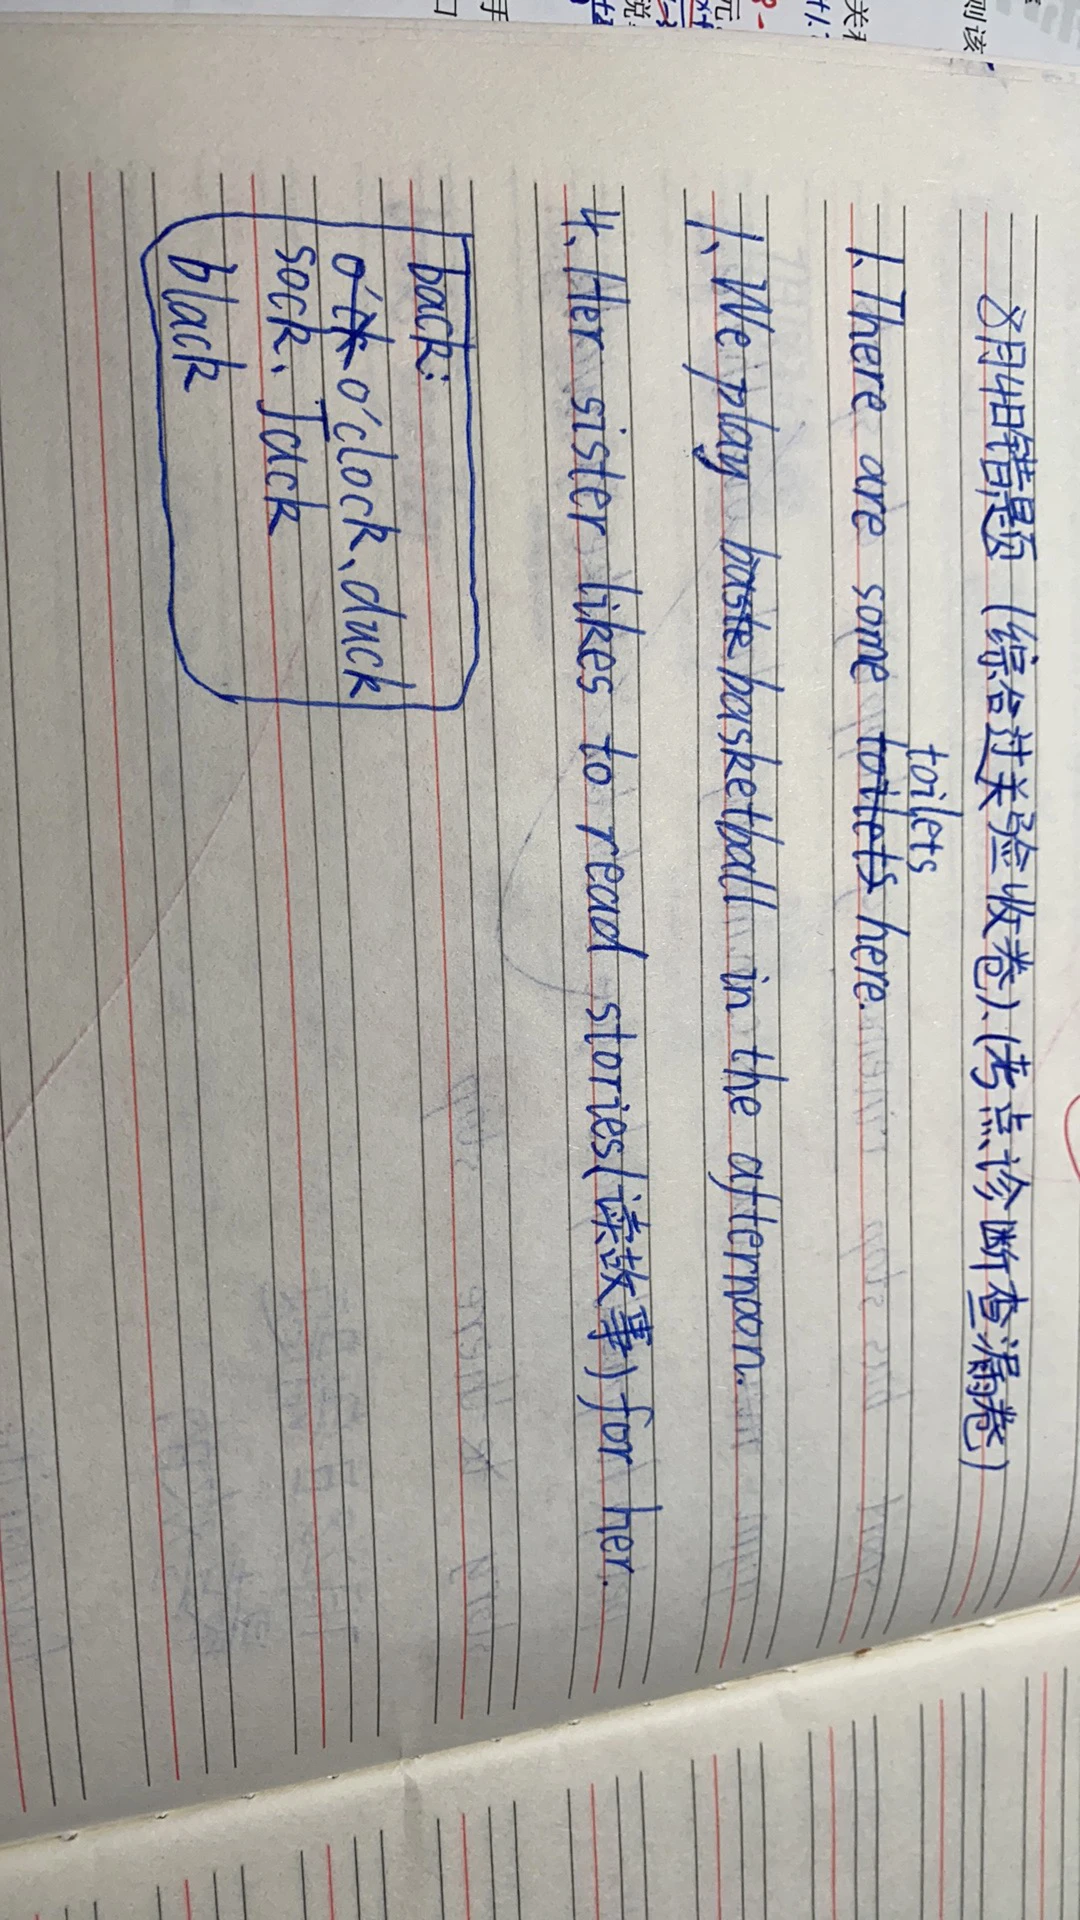 8月4日错题（综合过关验收卷）、（考点诊断查漏卷）
toilets
1. There are some toilets here.
1、We play baske basketball in the afternoon.
4、Her sister likes to read stories(读故事) for her.
back:
o'clock、duck
sock、Jack
black
则该